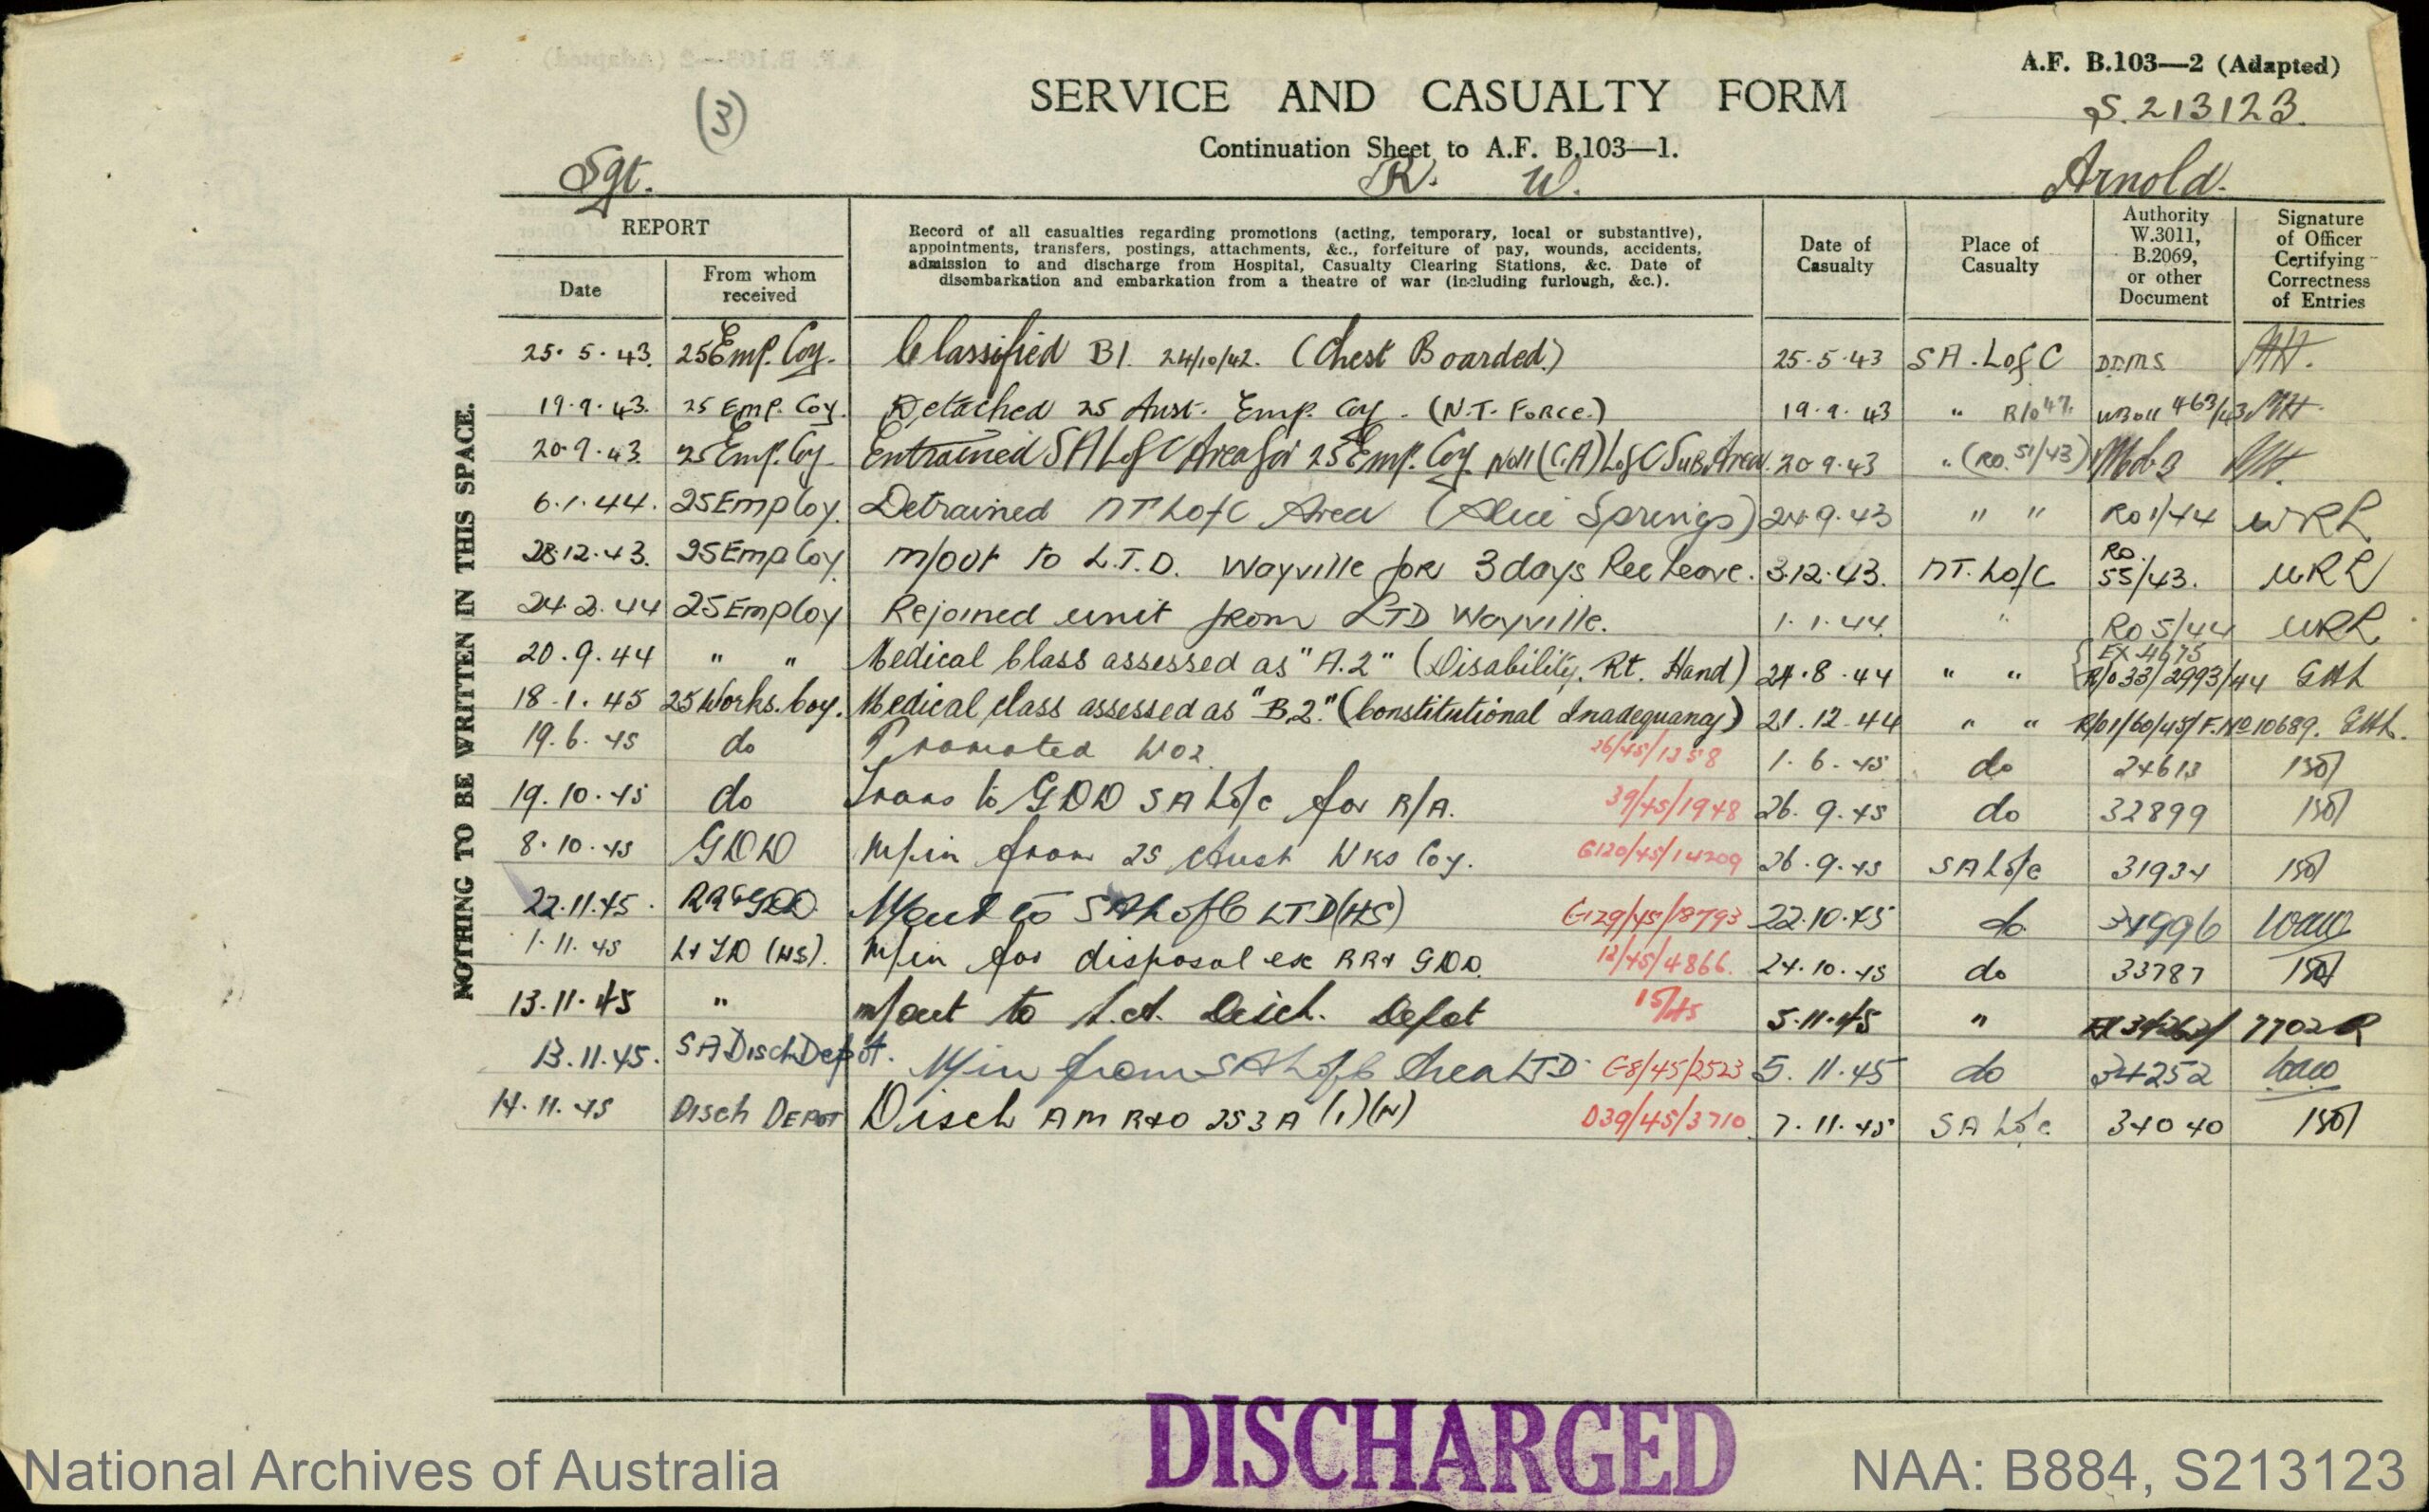 A.F. B.103—2 (Adapted)
(3)
SERVICE AND CASUALTY FORM
S.213123.
Continuation Sheet to A.F. B.103—1.
Sgt. R. W. Arnold.
REPORT
Date
From whom received
Record of all casualties regarding promotions (acting, temporary, local or substantive),
appointments, transfers, postings, attachments, &c., forfeiture of pay, wounds, accidents,
admission to and discharge from Hospital, Casualty Clearing Stations, &c. Date of
disembarkation and embarkation from a theatre of war (including furlough, &c.).
Date of Casualty
Place of Casualty
Authority W.3011, B.2069, or other Document
Signature of Officer Certifying Correctness of Entries
NOTHING TO BE WRITTEN IN THIS SPACE.
25.5.43. 25 Emp. Coy. Classified B1. 24/10/42. (Chest Boarded.) 25.5.43 SA. LofC DDMS
19.9.43. 25 Emp. Coy. Detached 25 Aust. Emp. Coy. (N.T. Force.) 19.9.43 " R/O 47. 463/43
20.9.43. 25 Emp. Coy Entrained SA LofC Area for 25 Emp. Coy No11 (C.A) LofC Sub. Area. 20.9.43 " (RO. 51/43)
6.1.44. 25 Emp Coy. Detrained NT LofC Area (Alice Springs) 24.9.43 " " RO 1/44 WRL
28.12.43. 25 Emp Coy. M/out to L.T.D. Wayville for 3 days Rec Leave. 3.12.43. NT. Lo/C RO. 55/43. WRL
24.2.44 25 Emp Coy Rejoined unit from LTD Wayville. 1.1.44. " RO 5/44 WRL
20.9.44 " " Medical Class assessed as "A.2" (Disability. Rt. Hand) 24.8.44 " " EX 4675 R/O 33/2993/44
18.1.45 25 Works. Coy. Medical class assessed as "B.2." (Constitutional Inadequancy) 21.12.44 " " R/O1/60/45/F.No 10689.
19.6.45 do Promoted WO2. 26/45/1358 1.6.45 do 24613
19.10.45 do Trans to GDD SA Lo/c for R/A. 39/45/1948 26.9.45 do 32899
8.10.45 GDD M/in from 25 Aust Wks Coy. G120/45/14209 26.9.45 SA Lo/c 31934
22.11.45. RR&GDD M/out to SA LofC LTD (HS) G129/45/18793 22.10.45 do 34996
1.11.45 LTD (HS). M/in for disposal ex RR& GDD. 12/45/4866. 24.10.45 do 33787
13.11.45 " m/out to S.A. Disch. Depot 15/45 5.11.45 "
13.11.45. SA Disch Depot. M/in from SA LofC Area LTD G8/45/2523 5.11.45 do 34252
14.11.45 Disch DEPOT Disch AMR&O 253A (1)(N) D39/45/3710 7.11.45 SA Lo/c 34040
DISCHARGED
National Archives of Australia
NAA: B884, S213123